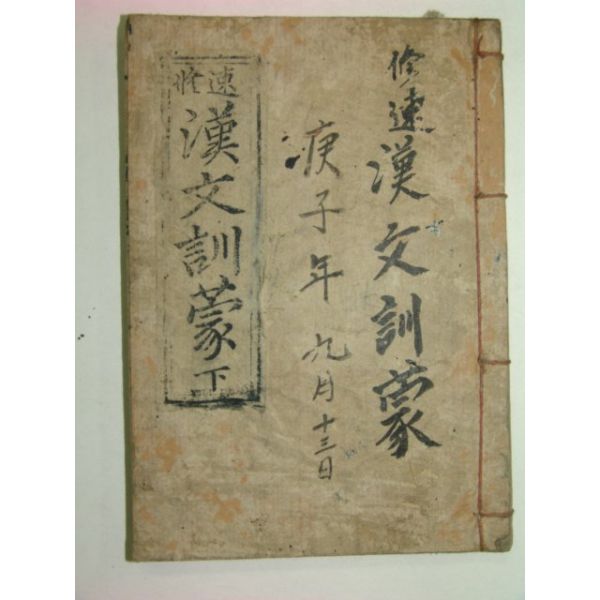 修速漢文訓蒙
庚子年 九月 十三日
速修
漢文訓蒙 下